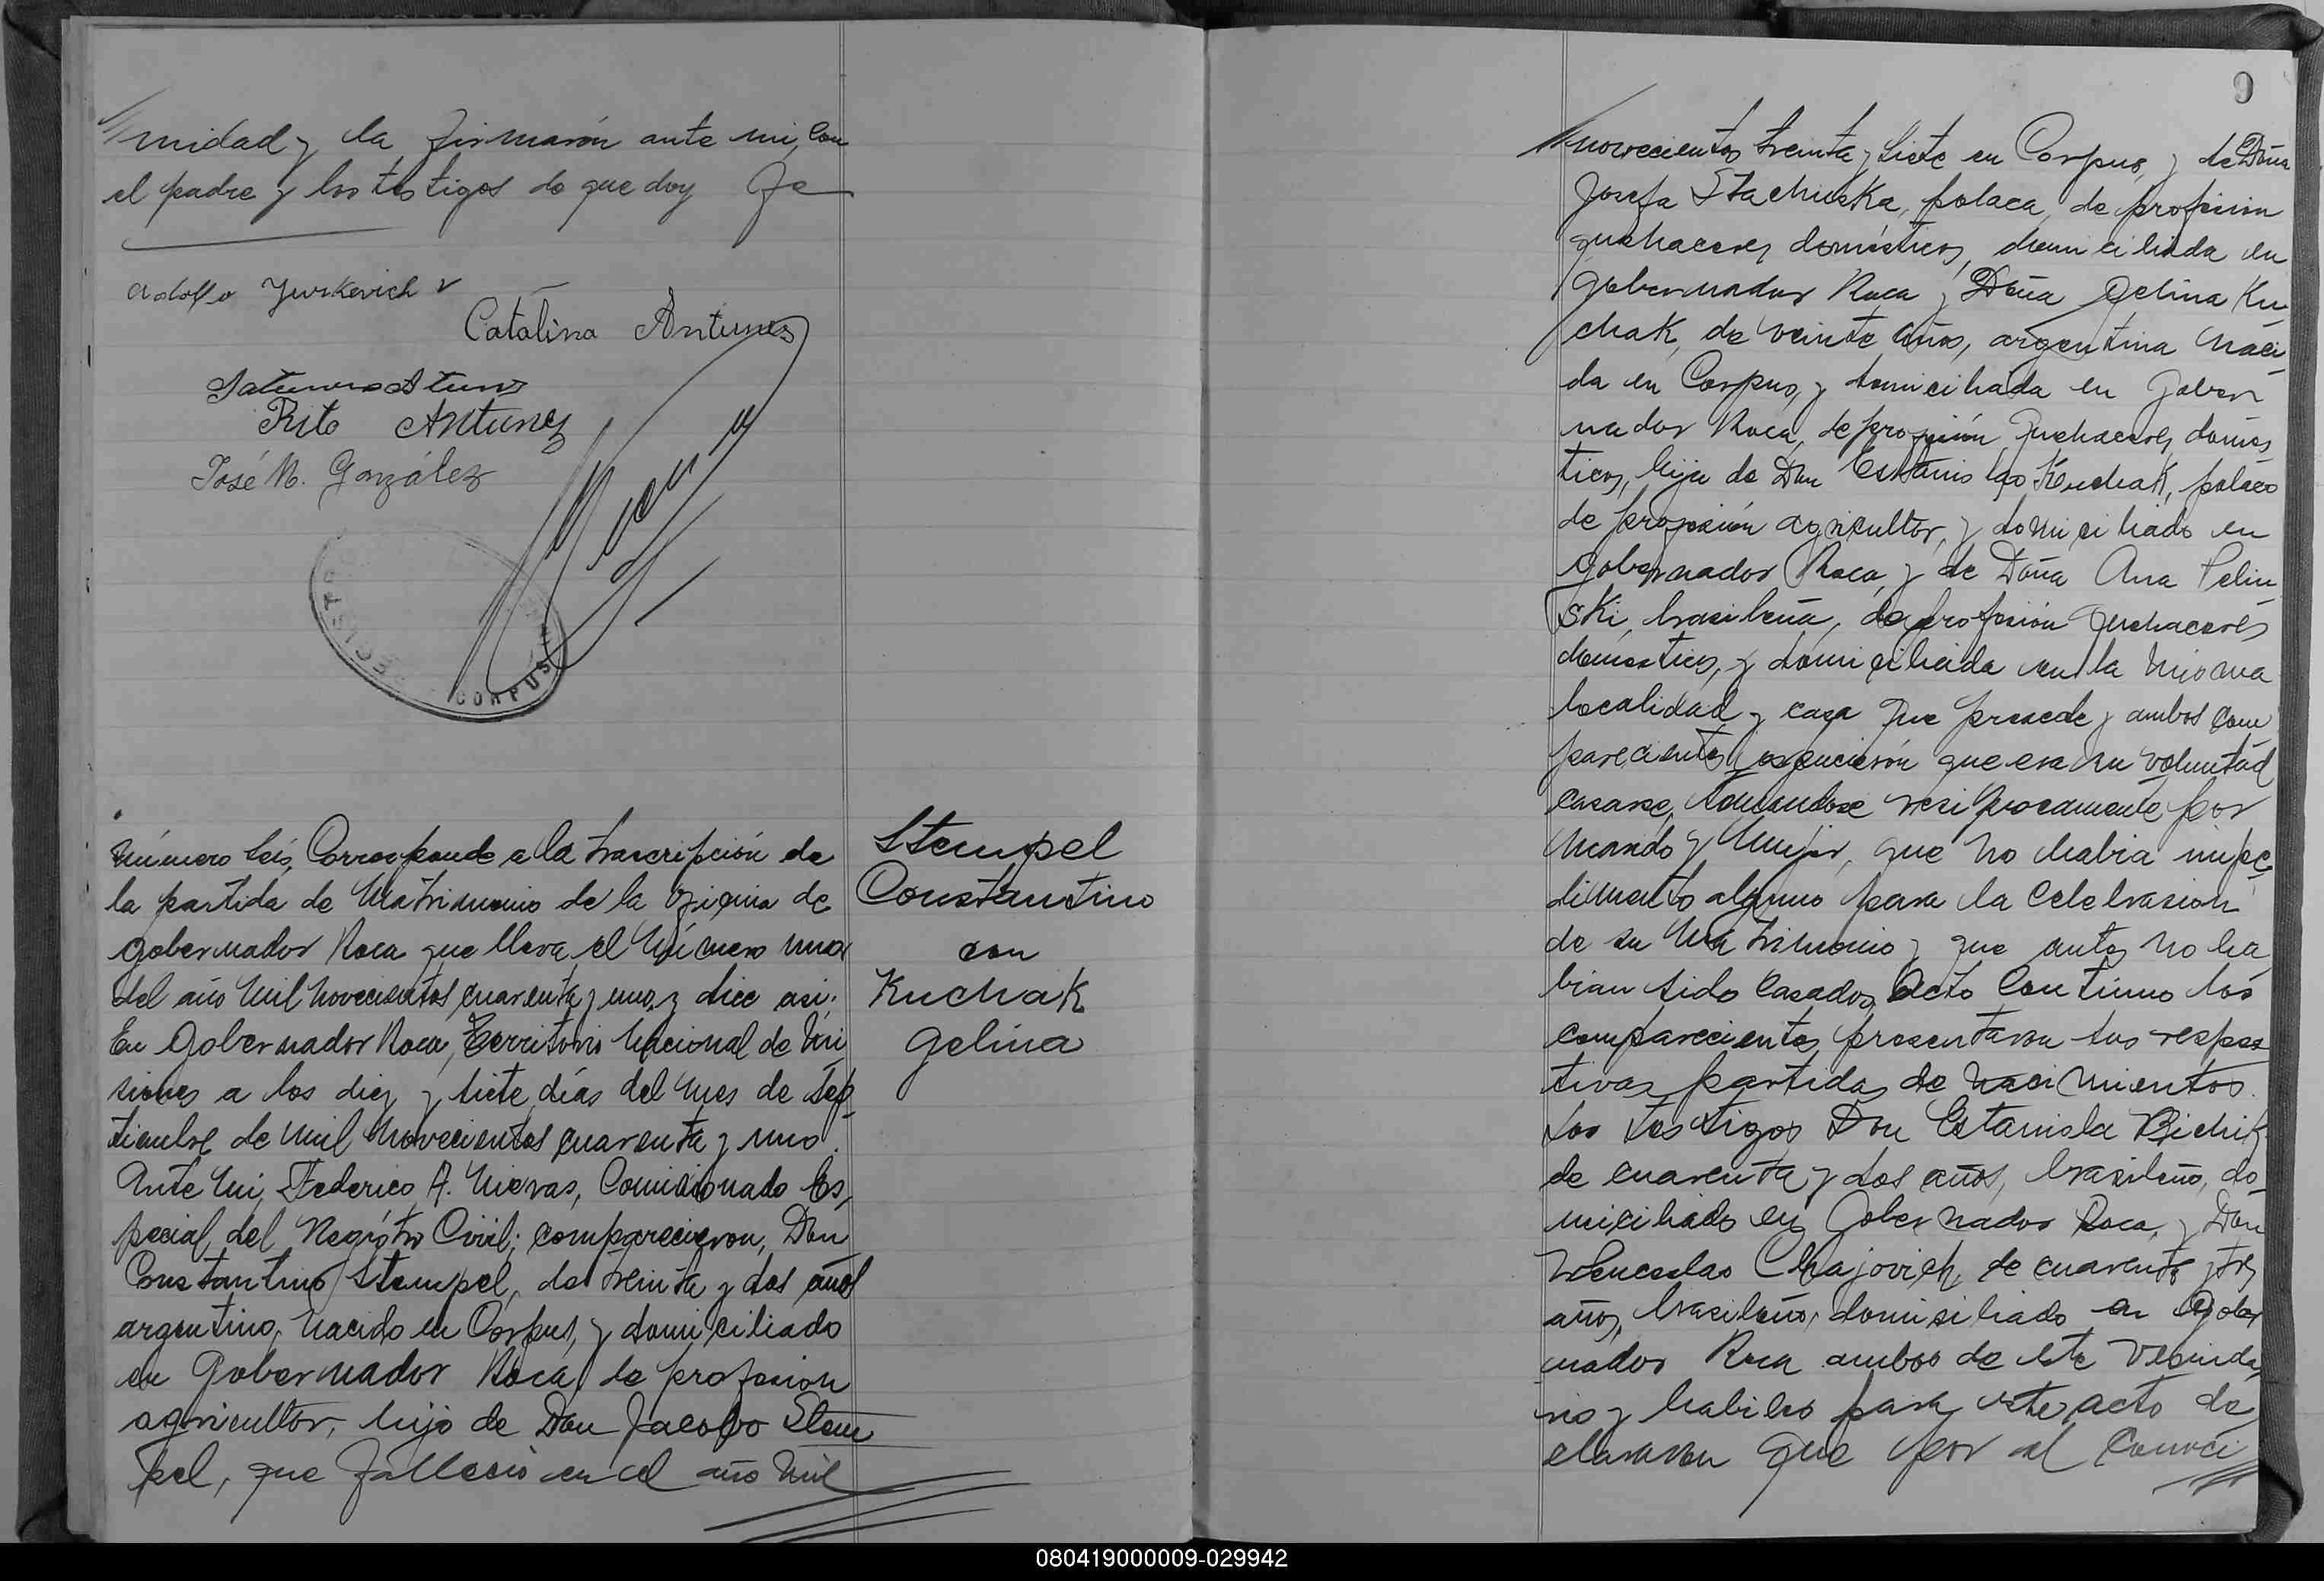 midad y la firmarón ante mi, con
el padre y los testigos de que doy fe
Adolfo Yurkevich
Catalina Antunes
Rito Antunez
José M. González
CORPUS
Número seis, Corresponde a la trascripción de
la partida de Matrimonio de la oficina de
Gobernador Roca que lleva el Número uno
del año Mil Novecientos cuarenta y uno, y dice asi:
En Gobernador Roca, Territorio Nacional de Mi
siones a los diez y siete días del mes de Sep
tiembre de Mil Novecientos cuarenta y uno.
Ante Mi, Federico A. Nievas, Comicionado Es
pecial del Registro Civil; comparecieron, Don
Constantino Stempel, de treinta y dos años
argentino, Nacido en Corpus, y domiciliado
en Gobernador Roca, de profesion
agricultor, hijo de Don Jacobo Stem
pel, que falleció en el año Mil
Stempel
Constantino
con
Kuchak
Gelina
9
novecientos treinta y siete en Corpus, y de Doña
Josefa Stachuska, polaca, de profesion
quehaceres domésticos, domiciliada en
Gobernador Roca y Doña Gelina Ku
chak, de veinte años, argentina Naci
da en Corpus, y domiciliada en Gober
nador Roca, de profesión quehaceres domés
ticos, hija de Don Estanislao Kuchak, polaco
de profesión agricultor, y domiciliado en
Gobernador Roca, y de Doña Ana Pelin
ski, brasileña, de profesión quehaceres
domésticos, y domiciliada en la misma
localidad y casa que precede y ambos com
parecientes que era su voluntad
casarse, tomandose resiprocamente por
Marido y Mujer, que no habia impe
dimento alguno para la celebrasion
de su Matrimonio y que antes no ha
bian sido casados, Acto continuo los
comparecientes presentaron sus respec
tivas partidas de nacimientos.
Los testigos Don Estanisla Bichik
de cuarenta y dos años, brasileño, do
miciliado en Gobernador Roca, y Don
Wenceslao Chajovich, de cuarenta y tres
años, brasileño, domisiliado en Gober
nador Roca ambos de este vecinda
rio y habiles para este acto de
clararon que por el conoci
080419000009-029942